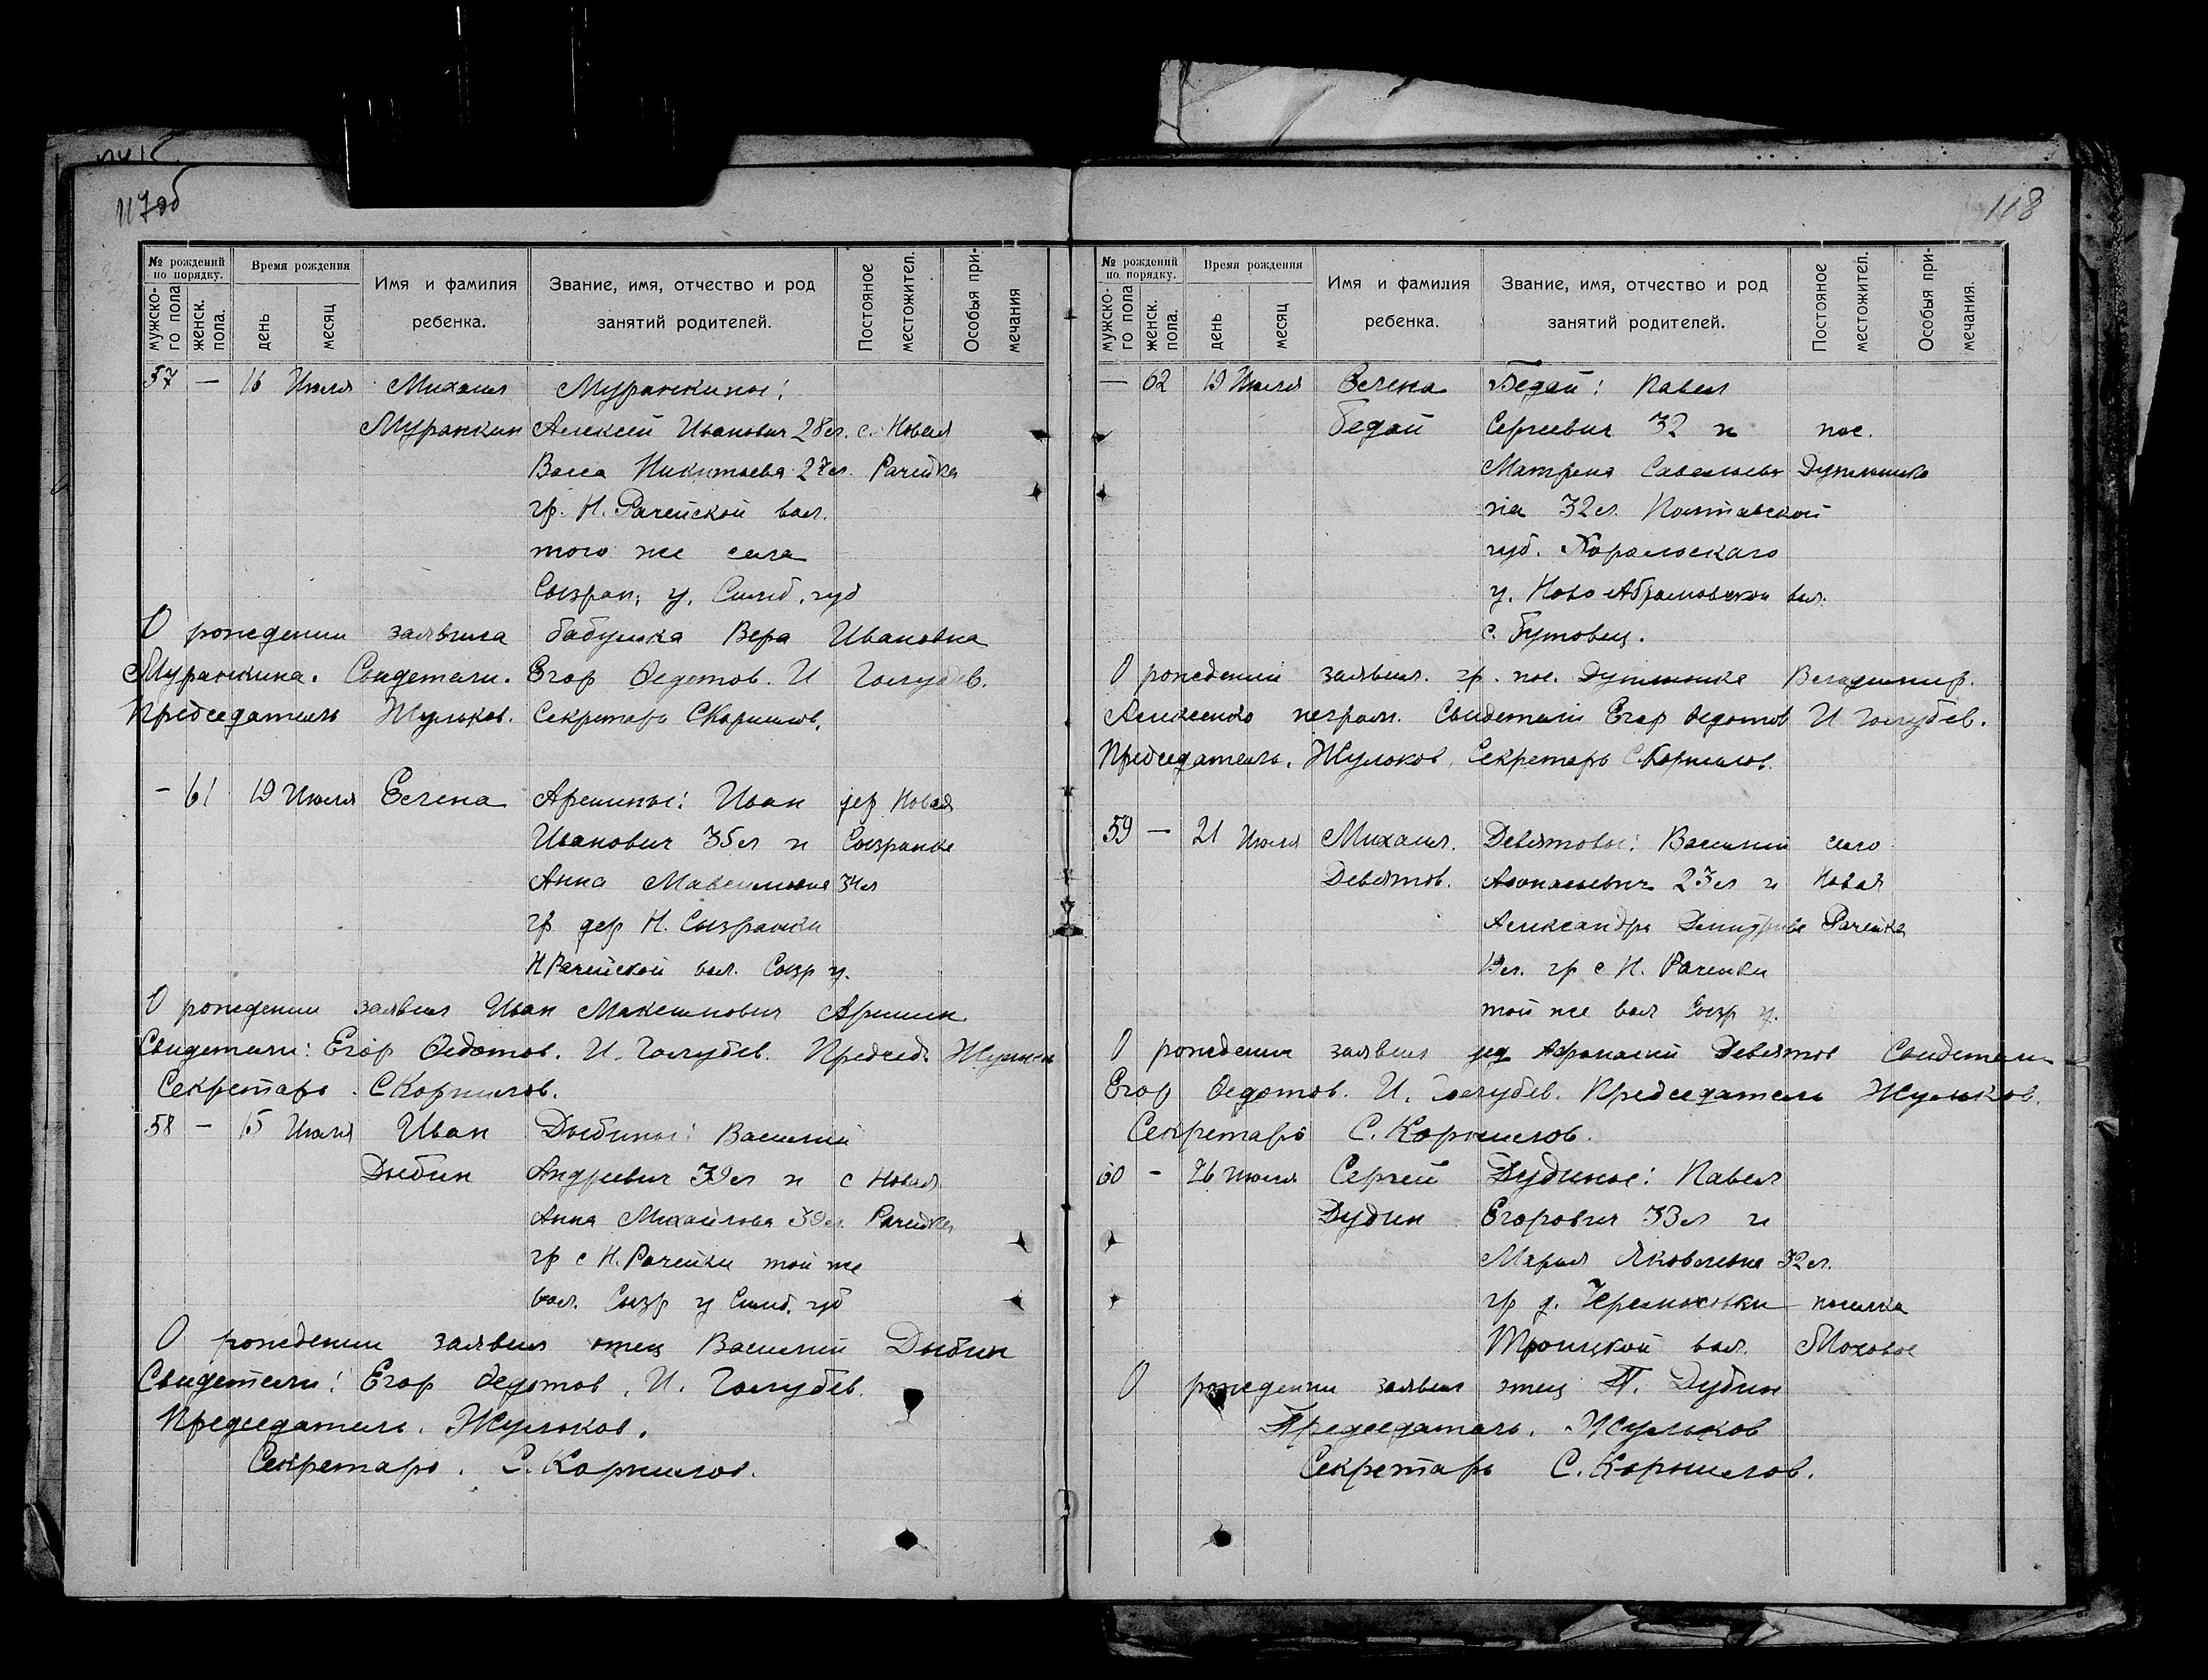 117об
№ рождений по порядку.
мужско-го пола
женск. пола.
Время рождения
день
месяц
Имя и фамилия ребенка.
Звание, имя, отчество и род занятий родителей.
Постояное местожител.
Особыя при-мечания
57 — 16 Июля Михаил Муранкины:
Муранкин Алексей Иванович 28 л. с. Новая
Васса Никитьева 27 л. Рачейка
гр. Н. Рачейской вол.
того же села
Сызран. у. Симб. губ
О рождении заявила бабушка Вера Ивановна
Муранкина. Свидетели. Егор Федотов. И Голубев.
Председатель Жульков. Секретарь С Корнилов.
- 61 19 Июля Елена Арешины: Иван дер Новая
Иванович 35 л и Сызранка
Анна Максимовна 34 л
гр дер Н. Сызранки
Н Рачейской вол. Сызр у.
О рождении заявил Иван Максимович Аришин
Свидетели: Егор Федотов. И. Голубев. Председ. Жульков
Секретарь. С Корнилов.
58 - 15 Июля Иван Дыбины: Василий
Дыбин Андреевич 39 л и с Новая
Анна Михайлова 39 л. Рачейка
гр с Н. Рачейки той же
вол. Сызр у Симб. губ
О рождении заявил отец Василий Дыбин
Свидетели: Егор Федотов. И. Голубев.
Председатель. Жульков.
Секретарь. С. Корнилов.
118
№ рождений по порядку.
мужско-го пола
женск. пола.
Время рождения
день
месяц
Имя и фамилия ребенка.
Звание, имя, отчество и род занятий родителей.
Постояное местожител.
Особыя при-мечания.
— 62 19 Июля Елена Бедай: Павел
Бедай Сергеевич 32 и пос.
Матрена Савельевна
32 л. Полтавской
губ. Хорольскаго
у. Ново Абрамовской вол.
с. Бутовец.
О рождении заявил. гр. пос. Владимир.
Алексенко неграм. Свидетели Егор Федотов И Голубев.
Председатель. Жульков. Секретарь С Корнилов.
59 — 21 Июля Михаил. Девятовы: Василий село
Девятов. Афонасьевич 23 л и Новая
Александра Рачейка
19 л. гр с Н. Рачейки
той же вол Сызр у.
О рождении заявил дед Афонасий Девятов Свидетели
Егор Федотов. И. Голубев. Председатель Жульков.
Секретарь С. Корнилов.
60 - 26 Июля Сергей Дудины: Павел
Дудин Егорович 33 л и
Мария Яковлевна 32 л.
гр д. поселка
Троицкой вол. Моховое
О рождении заявил отец П. Дудин
Председатель. Жульков
Секретарь С. Корнилов.